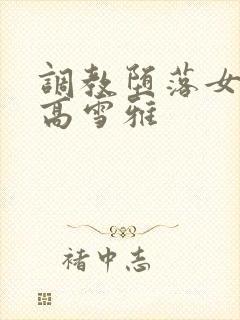 調教堕落女
高雪雅
褚中志